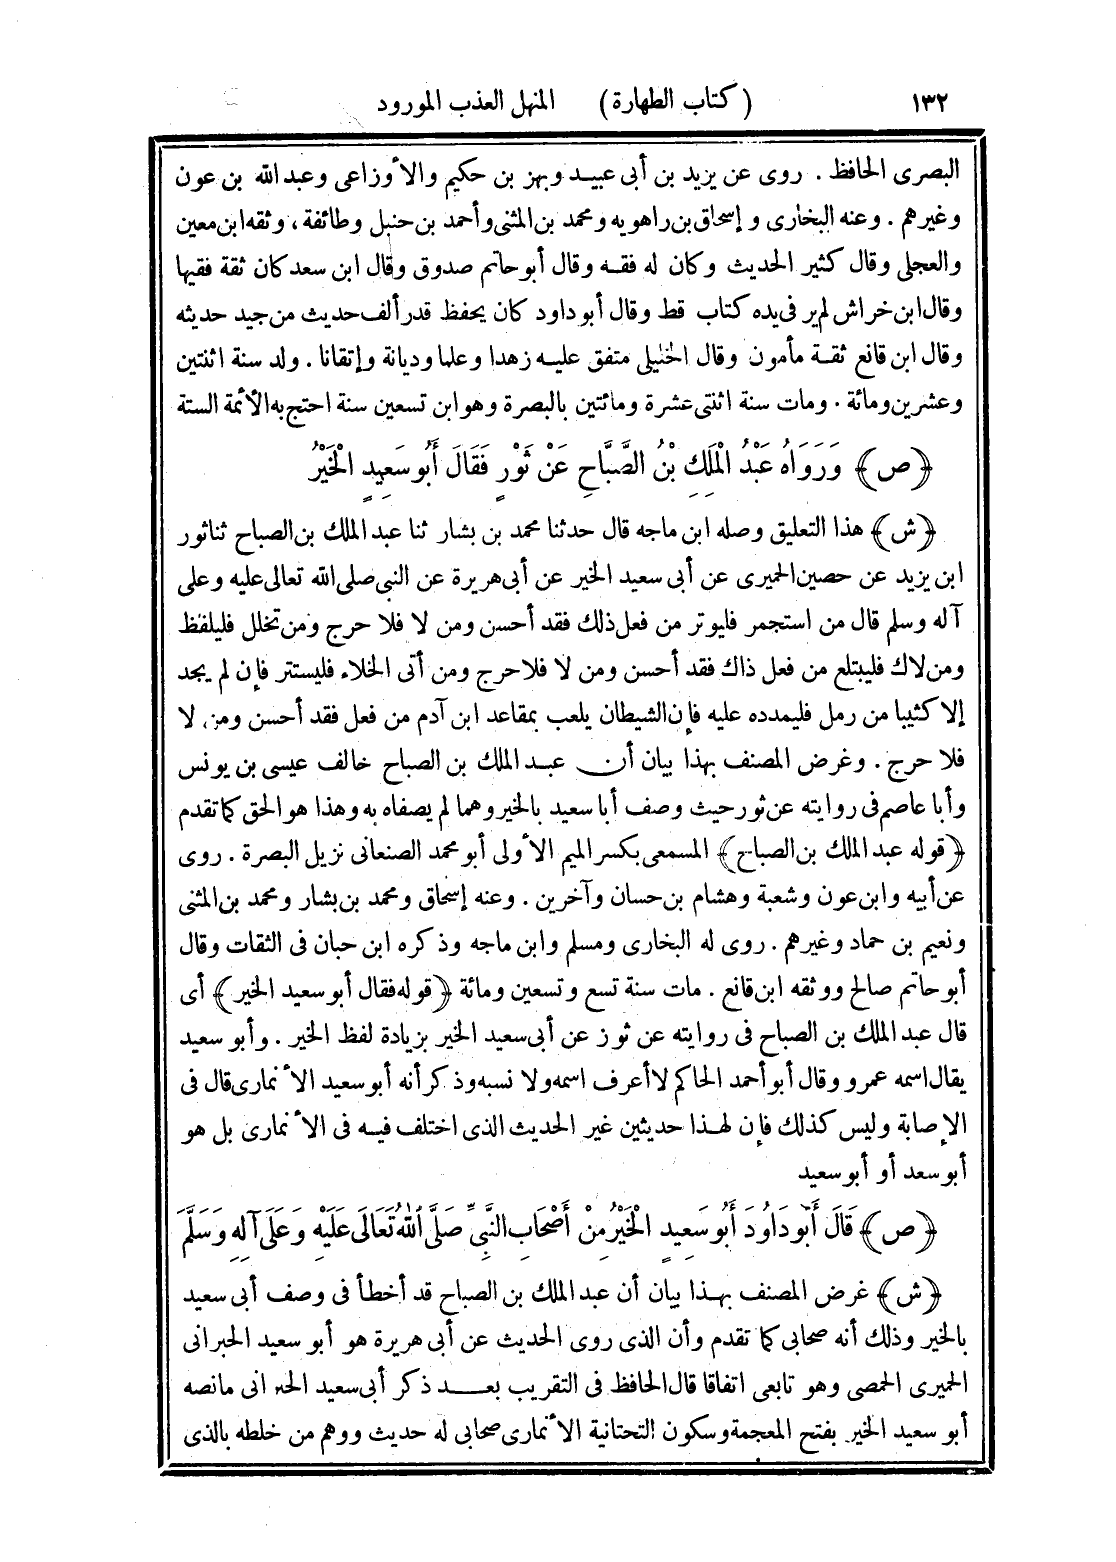 ١٣٢ (كتاب الطهارة) المنهل العذب المورود
البصرى الحافظ . روى عن يزيد بن أبى عبيد وبهز بن حكيم والأوزاعى وعبد الله بن عون
وغيرهم . وعنه البخارى وإسحاق بن راهويه ومحمد بن المثنى وأحمد بن حنبل وطائفة ، وثقه ابن معين
والعجلى وقال كثير الحديث وكان له فقه وقال أبو حاتم صدوق وقال ابن سعد كان ثقة فقيها
وقال ابن خراش لم ير فى يده كتاب قط وقال أبو داود كان يحفظ قدر ألف حديث من جيد حديثه
وقال ابن قانع ثقة مأمون وقال الخليلى متفق عليه زهدا وعلما وديانة وإتقانا . ولد سنة اثنتين
وعشرين ومائة . ومات سنة اثنتى عشرة ومائتين بالبصرة وهو ابن تسعين سنة احتج به الأئمة الستة
﴿ص﴾ وَرَوَاهُ عَبْدُ الْمَلِكِ بْنُ الصَّبَّاحِ عَنْ ثَوْرٍ فَقَالَ أَبُو سَعِيدٍ الْخَيْرُ
﴿ش﴾ هذا التعليق وصله ابن ماجه قال حدثنا محمد بن بشار ثنا عبد الملك بن الصباح ثنا ثور
ابن يزيد عن حصين الحميرى عن أبى سعيد الخير عن أبى هريرة عن النبى صلى الله تعالى عليه وعلى
آله وسلم قال من استجمر فليوتر من فعل ذلك فقد أحسن ومن لا فلا حرج ومن تخلل فليلفظ
ومن لاك فليبتلع من فعل ذاك فقد أحسن ومن لا فلا حرج ومن أتى الخلاء فليستتر فإن لم يجد
إلا كثيبا من رمل فليمدده عليه فإن الشيطان يلعب بمقاعد ابن آدم من فعل فقد أحسن ومن لا
فلا حرج . وغرض المصنف بهذا بيان أن عبد الملك بن الصباح خالف عيسى بن يونس
وأبا عاصم فى روايته عن ثور حيث وصف أبا سعيد بالخير وهما لم يصفاه به وهذا هو الحق كما تقدم
﴿قوله عبد الملك بن الصباح﴾ المسمعى بكسر الميم الأولى أبو محمد الصنعانى نزيل البصرة . روى
عن أبيه وابن عون وشعبة وهشام بن حسان وآخرين . وعنه إسحاق ومحمد بن بشار ومحمد بن المثنى
ونعيم بن حماد وغيرهم . روى له البخارى ومسلم وابن ماجه وذكره ابن حبان فى الثقات وقال
أبو حاتم صالح ووثقه ابن قانع . مات سنة تسع وتسعين ومائة ﴿قوله فقال أبو سعيد الخير﴾ أى
قال عبد الملك بن الصباح فى روايته عن ثور عن أبى سعيد الخير بزيادة لفظ الخير . وأبو سعيد
يقال اسمه عمرو وقال أبو أحمد الحاكم لا أعرف اسمه ولا نسبه وذكر أنه أبو سعيد الأنمارى قال فى
الإصابة وليس كذلك فإن لهذا حديثين غير الحديث الذى اختلف فيه فى الأنمارى بل هو
أبو سعد أو أبو سعيد
﴿ص﴾ قَالَ أَبُو دَاوُدَ أَبُو سَعِيدٍ الْخَيْرُ مِنْ أَصْحَابِ النَّبِيِّ صَلَّى اللهُ تَعَالَى عَلَيْهِ وَعَلَى آلِهِ وَسَلَّمَ
﴿ش﴾ غرض المصنف بهذا بيان أن عبد الملك بن الصباح قد أخطأ فى وصف أبى سعيد
بالخير وذلك أنه صحابى كما تقدم وأن الذى روى الحديث عن أبى هريرة هو أبو سعيد الحبرانى
الحميرى الحمصى وهو تابعى اتفاقا قال الحافظ فى التقريب بعد ذكر أبى سعيد الحبرانى مانصه
أبو سعيد الخير بفتح المعجمة وسكون التحتانية الأنمارى صحابى له حديث ووهم من خلطه بالذى